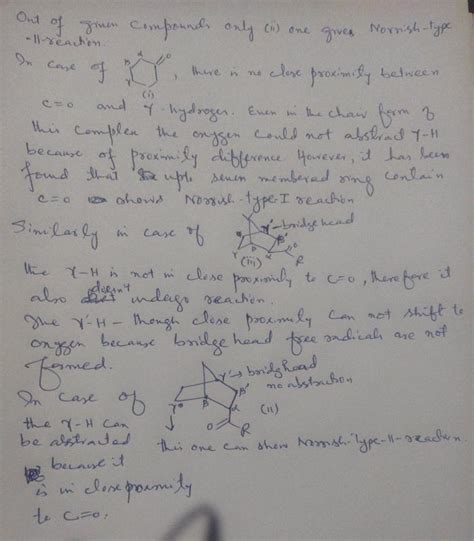 Out of given compounds only (ii) one gives Norrish-type
-II-reaction.
In case of α β γ O (i) , there is no close proximity between
c=o and γ-hydrogen. Even in the chair form of
this complex the oxygen could not abstract γ-H
because of proximity difference However, it has been
found that upto seven membered ring contain
c=o shows Norrish-type-I reaction
Similarly in case of γ'-bridgehead β' γ β α O R (iii)
the γ-H is not in close proximity to C=O, therefore it
also doesn't undergo reaction.
The γ'-H - though close proximity can not shift to
oxygen because bridgehead free radicals are not
formed.
In case of γ'→bridgehead β' no abstraction γ β α O R (ii)
the γ-H can
be abstracted this one can show Norrish-Type-II-reaction.
because it
is in close proximity
to C=O.